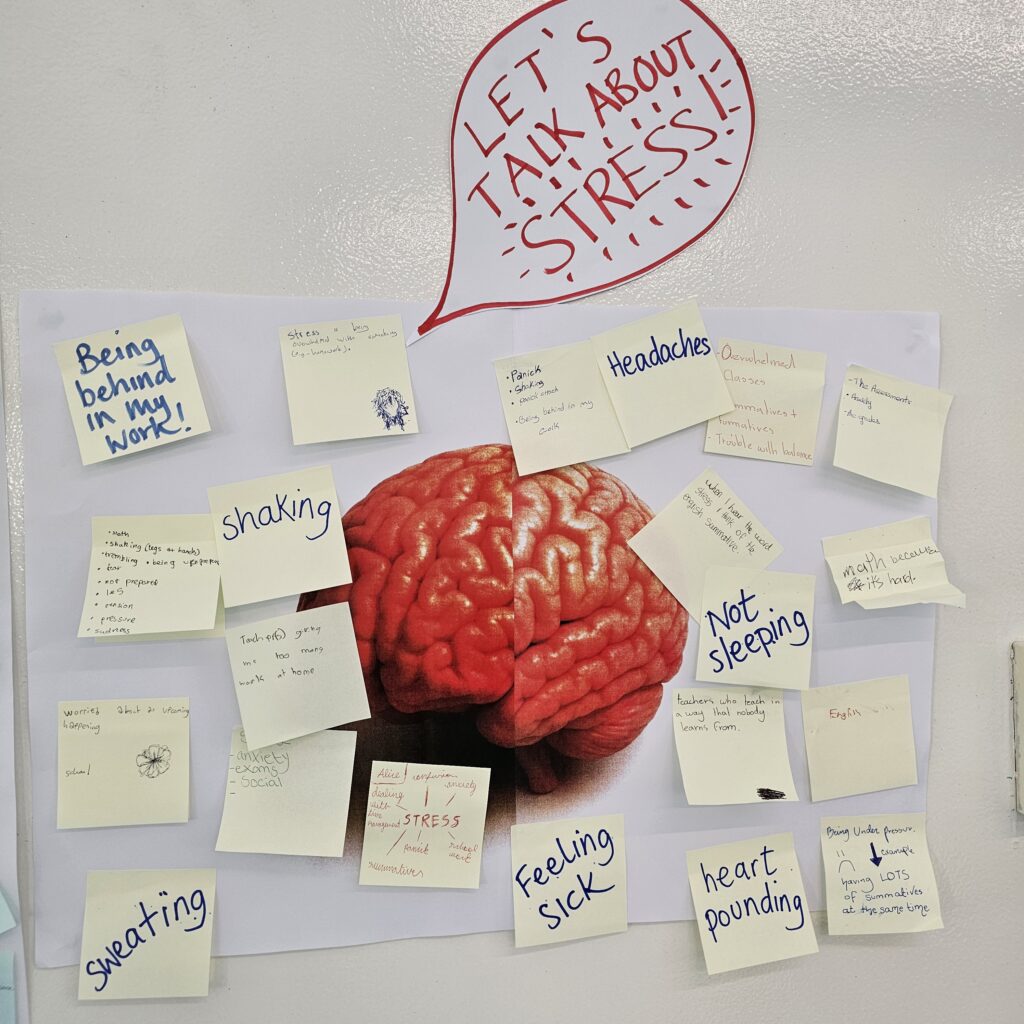 LET'S
TALK ABOUT
STRESS!
Being
behind
in my
work!
Stress = being
overwhelmed with something
(e.g-homework).
• Panick
• Shaking
• panick attack
• Being behind in my
work
Headaches
- Overwhelmed
Classes
ummatives +
ormatives
- Trouble with balance
- The Assessments
• Anxiety
• the grades
shaking
• Math
• shaking (legs or hands)
• trembling • being unprepared
• fear
• not prepared
• I&S
• tension
• pressure
• sadness
When I hear the word
stress I think of the
english summative.
math because
it's hard.
Not
sleeping
Teacher(s) giving
me too many
work at home
teachers who teach in
a way that nobody
learns from.
English
worried about an upcoming
happening
school
anxiety
- exams
- Social
-
Alice confusion anxiety
dealing
with
time
management
STRESS
panick
school
work
summatives
Feeling
sick
heart
pounding
Being Under pressure.
example
having LOTS
of summatives
at the same time
sweating